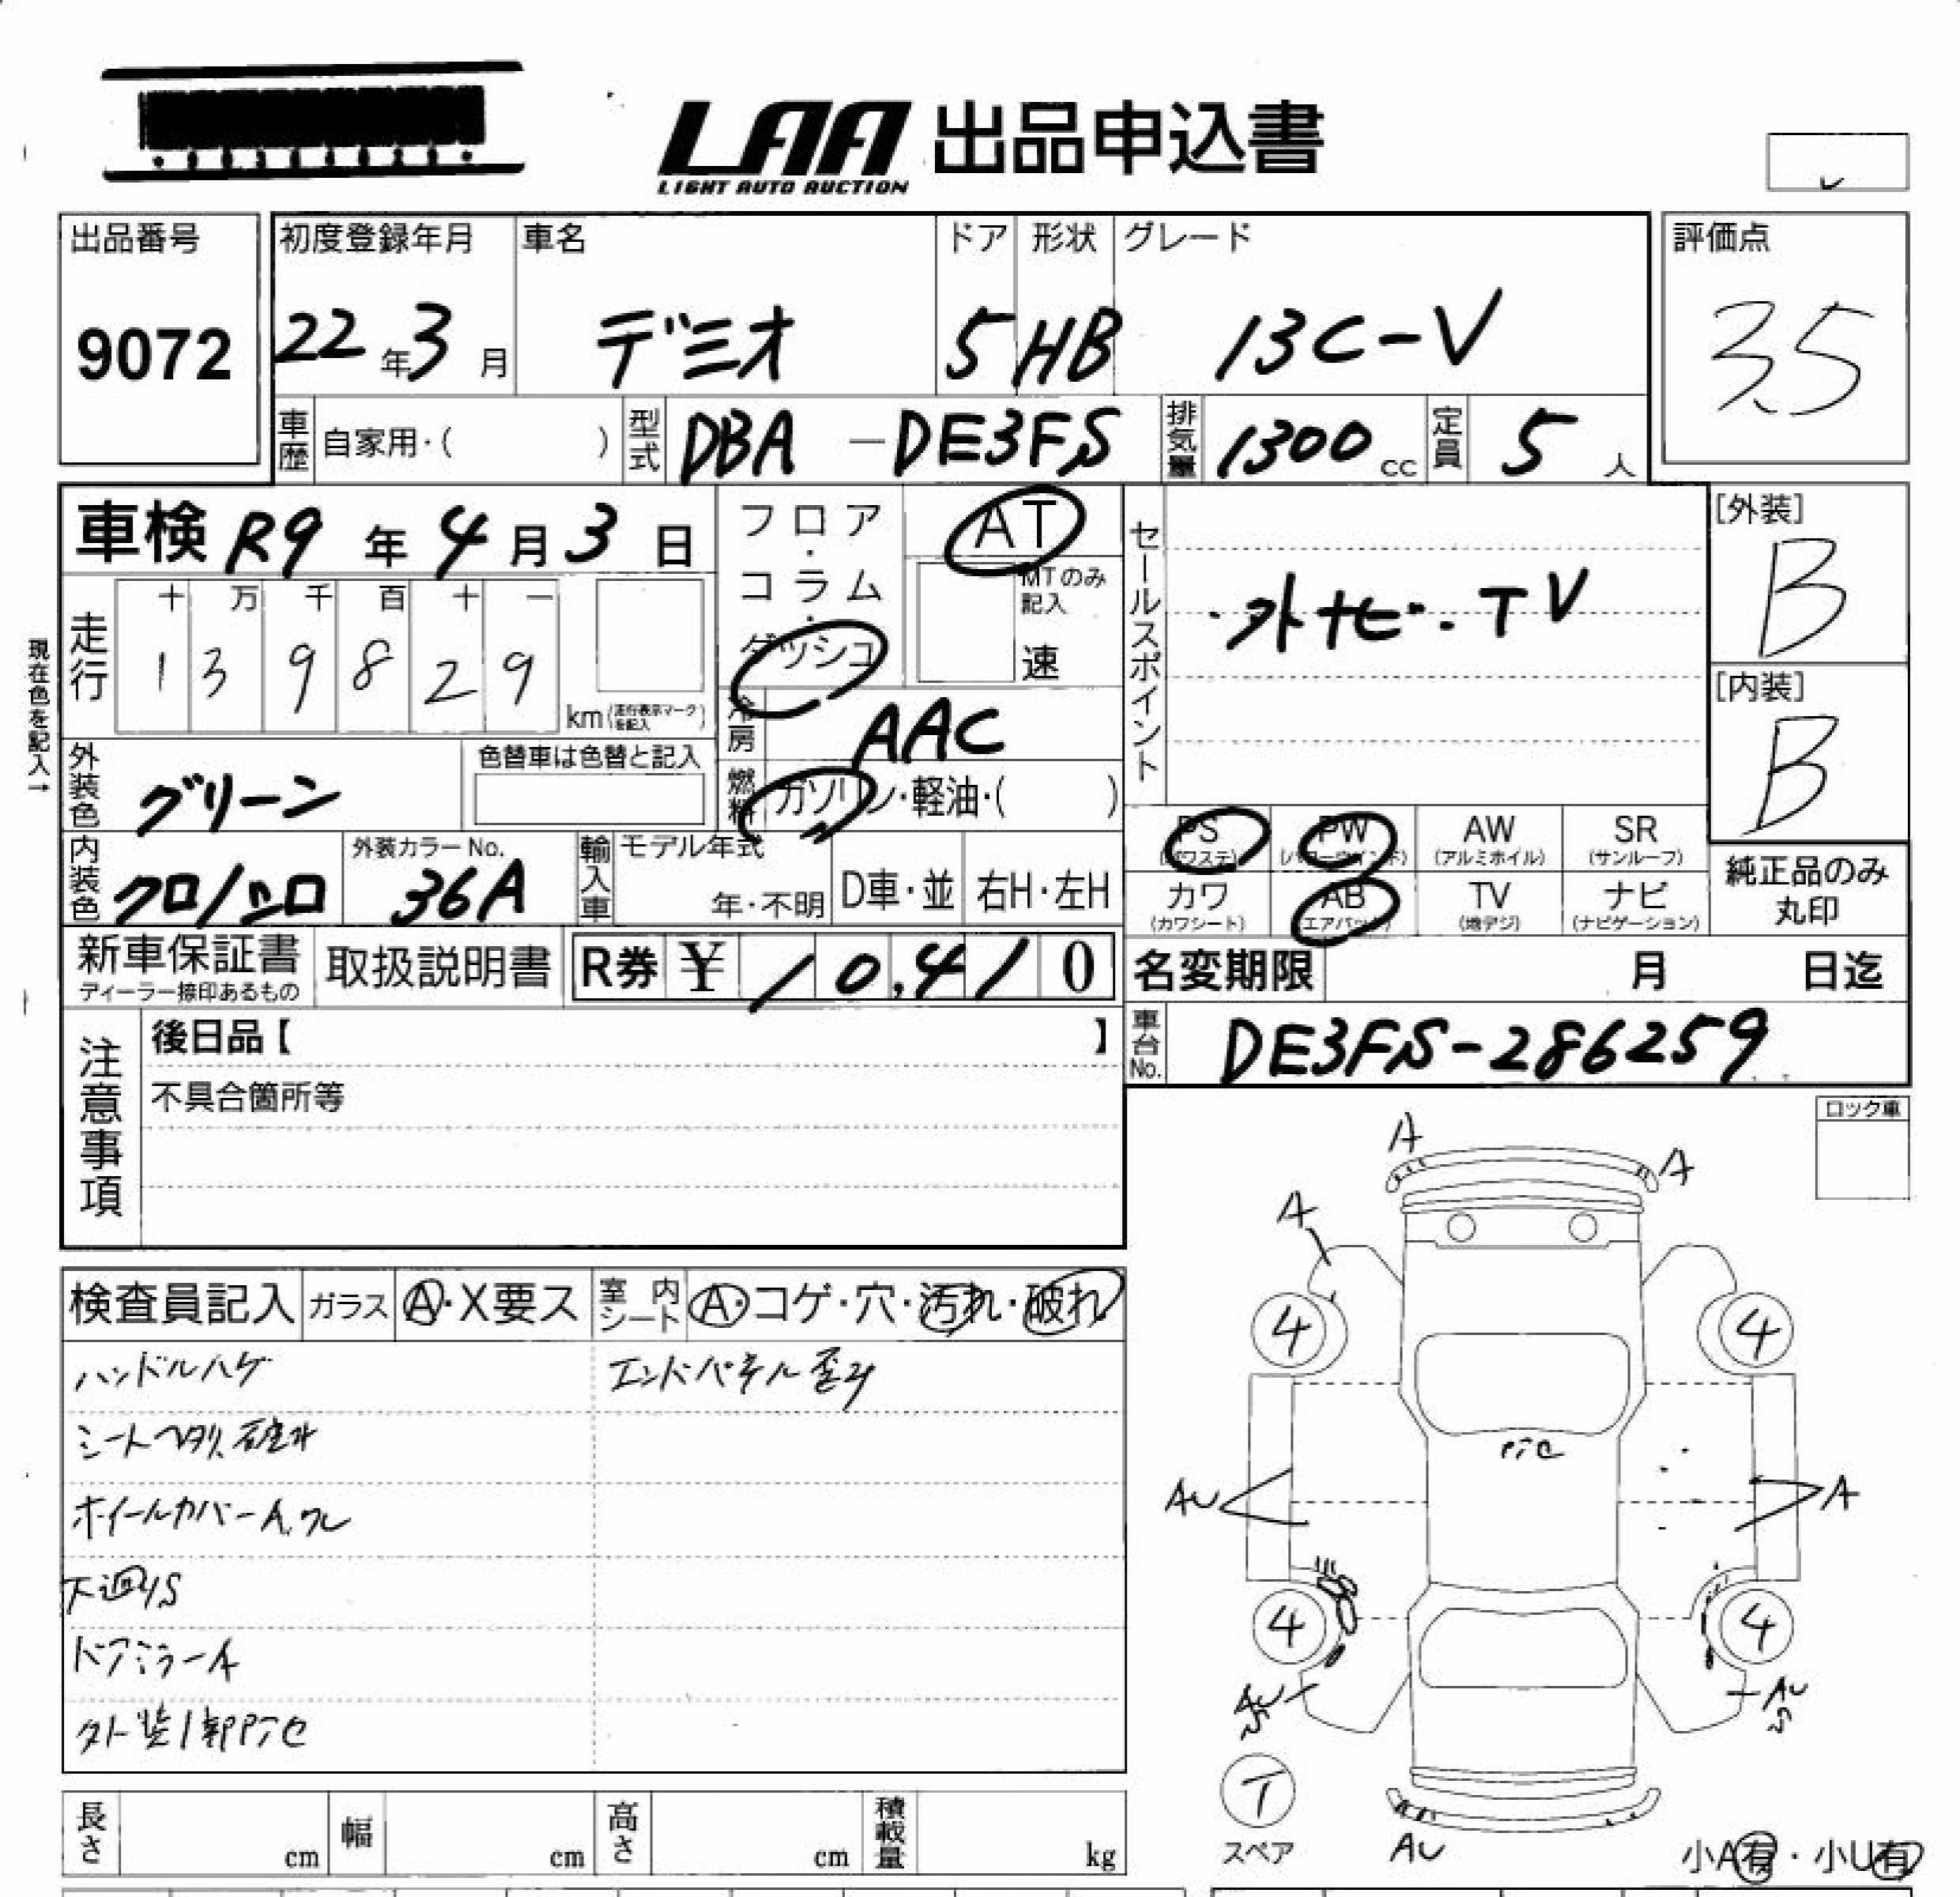 LAA 出品申込書
LIGHT AUTO AUCTION
出品番号
9072
初度登録年月
22年3月
車名
デミオ
ドア
5
形状
HB
グレード
13C-V
評価点
3.5
車歴 自家用・( )
型式 DBA-DE3FS
排気量 1300cc
定員 5人
車検 R9年4月3日
現在色を記入→
走行
十 万 千 百 十 一
1 3 9 8 2 9
km(走行表示マークを記入)
フロア・コラム・ダッシュ
AT
MTのみ記入
速
冷房 AAC
燃料 ガソリン・軽油・( )
セールスポイント
・外ナビ・TV
[外装]
B
[内装]
B
外装色 グリーン
色替車は色替と記入
内装色 クロ/シロ
外装カラーNo.
36A
輸入車
モデル年式
年・不明
D車・並
右H・左H
PS
(パワステ)
PW
(パワーウインド)
AW
(アルミホイル)
SR
(サンルーフ)
カワ
(カワシート)
AB
(エアバック)
TV
(地デジ)
ナビ
(ナビゲーション)
純正品のみ
丸印
新車保証書
ディーラー捺印あるもの
取扱説明書
R券 ¥ 10,410
名変期限 月 日迄
車台No. DE3FS-286259
注意事項
後日品【 】
不具合箇所等
ロック車
検査員記入
ガラス A・X要ス
室内シート A・コゲ・穴・汚れ・破れ
ハンドルハゲ
シートヘタリ
ホイールカバーA.ワレ
下廻りS
ドアミラーA
外装1部
エンドパネル歪み
A
A
A
4
4
AU
A
4
4
AU
S
AU
S
T
スペア
AU
小A有・小U有
長さ cm
幅 cm
高さ cm
積載量 kg